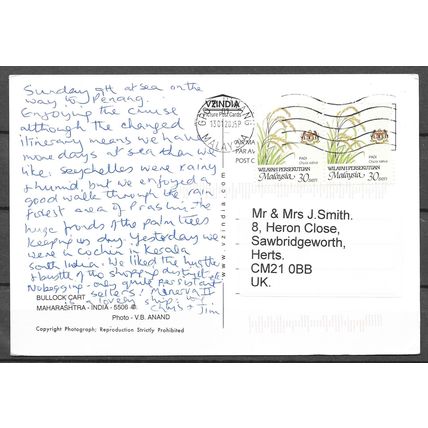 Sunday 9th at sea on the
way to Penang.
Enjoying the cruise
although the changed
itinerary means we have
more days at sea than we
like. Seychelles were rainy
& humid, but we enjoyed a
good walk through the rain
forest area of Praslin. The
huge fronds of the palm trees
keeping us dry. Yesterday we
were in Cochin in Kerala
South India. We liked the hustle
& bustle of the shopping district.
No begging - only quite persistant
sellers! Minerva II
is a lovely ship.
Chris & Jim
BULLOCK CART
MAHARASHTRA - INDIA - 5506
Photo - V.B. ANAND
Copyright Photograph; Reproduction Strictly Prohibited
VZINDIA
Picture Post Cards
MALAYSIA
PAR AV
POST C
www.vzindia.com
PADI
Oryza sativa
WILAYAH PERSEKUTUAN
Malaysia 30 sen
PADI
Oryza sativa
WILAYAH PERSEKUTUAN
Malaysia 30 sen
Mr & Mrs J.Smith.
8, Heron Close,
Sawbridgeworth,
Herts.
CM21 0BB
UK.